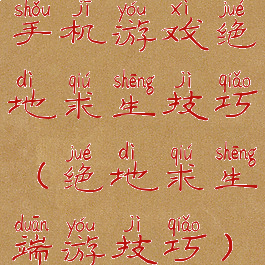 shǒu jī yóu xì jué
手机游戏绝
dì qiú shēng jì qiǎo
地求生技巧
jué dì qiú shēng
（绝地求生
duān yóu jì qiǎo
端游技巧）